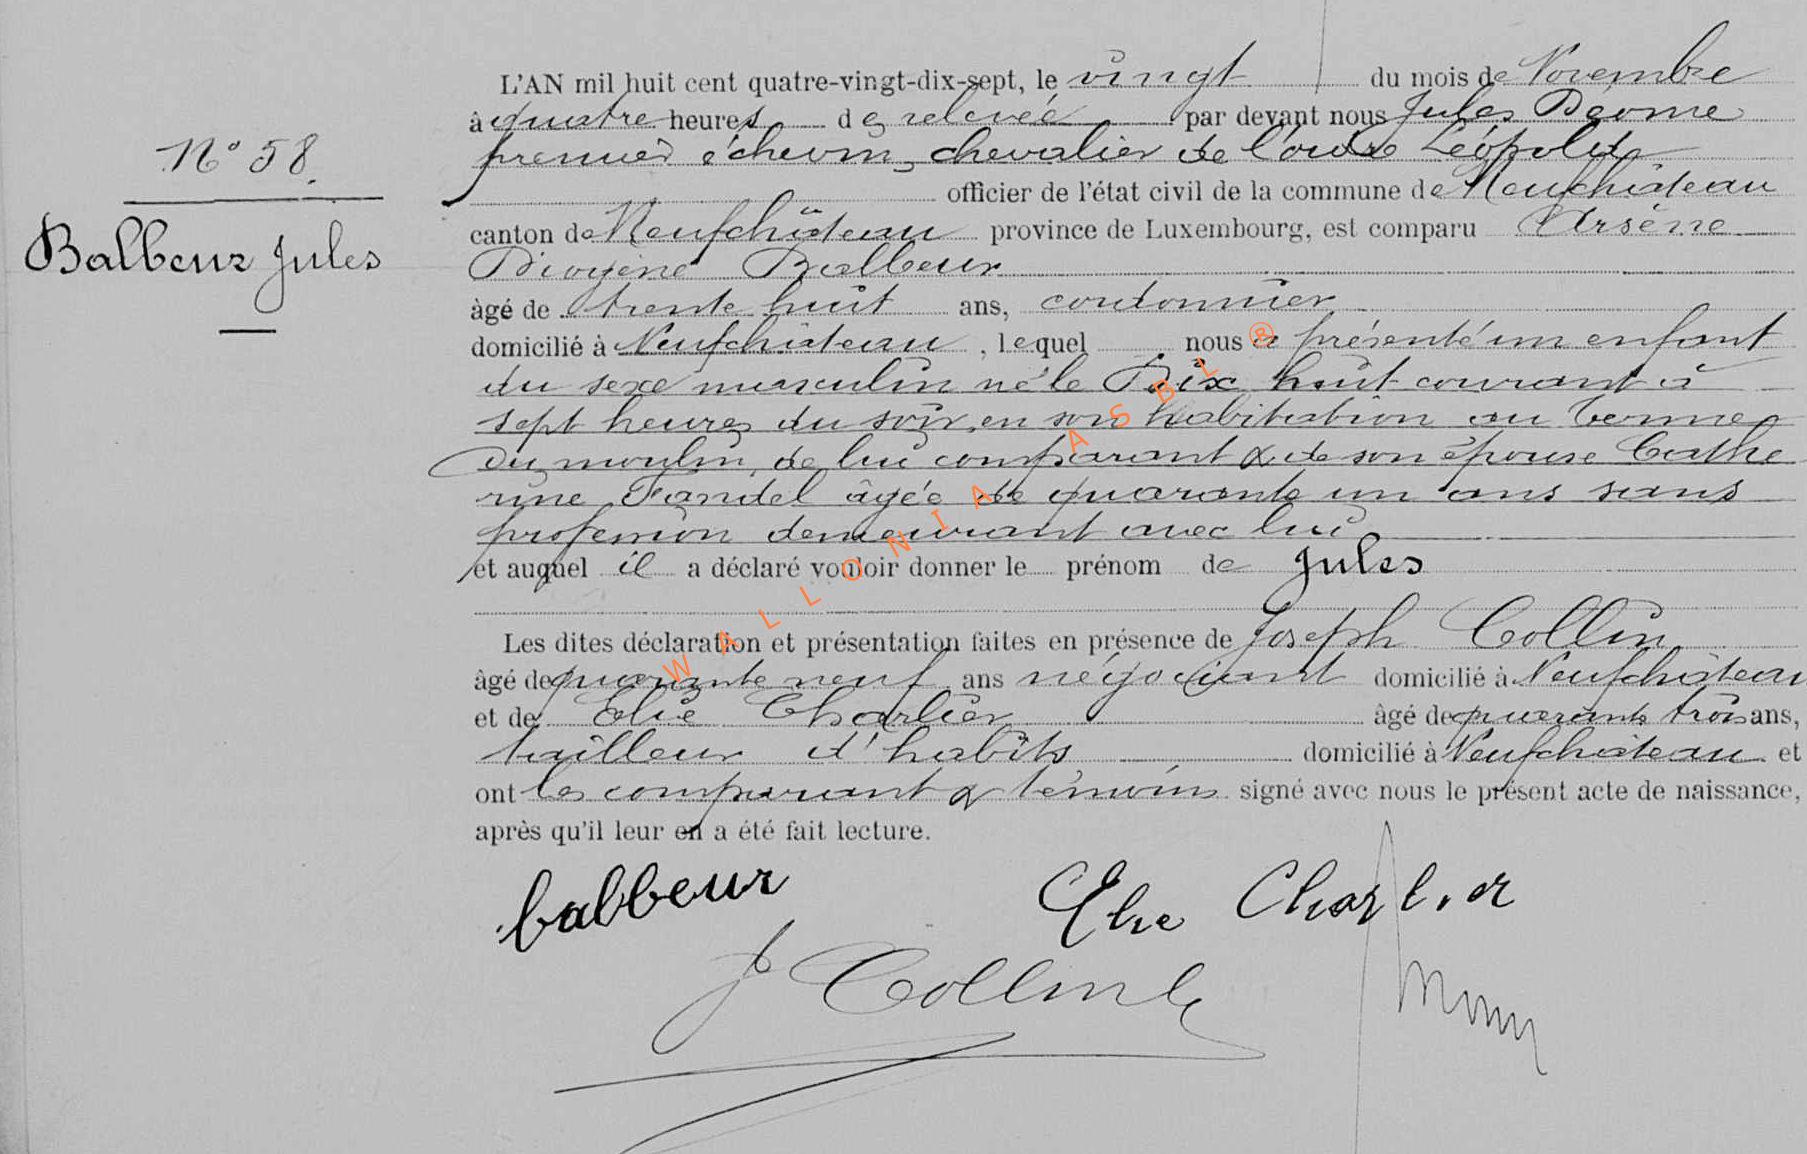 N° 58.
Balbeur Jules
L'AN mil huit cent quatre-vingt-dix-sept, le vingt du mois de Novembre
à quatre heures de relevée par devant nous Jules Déome
premier échevin, chevalier de l'ordre Léopold
officier de l'état civil de la commune de Neufchâteau
canton de Neufchâteau province de Luxembourg, est comparu Arsène
Diogène Balbeur
âgé de trente huit ans, cordonnier
domicilié à Neufchâteau, lequel nous a présenté un enfant
du sexe masculin né le Dix huit courant à
sept heures du soir, en son habitation au Terme
du moulin, de lui comparant & de son épouse Cathe
rine Fandel âgée de quarante un ans sans
profession demeurant avec lui
et auquel il a déclaré vouloir donner le prénom de Jules
Les dites déclaration et présentation faites en présence de Joseph Collin
âgé de quarante neuf ans négociant domicilié à Neufchâteau
et de Elie Charlier âgé de quarante trois ans,
tailleur d'habits domicilié à Neufchâteau et
ont les comparant & témoins signé avec nous le présent acte de naissance,
après qu'il leur en a été fait lecture.
balbeur Elie Charlier
J Collin
WALLONIA ASBL ®